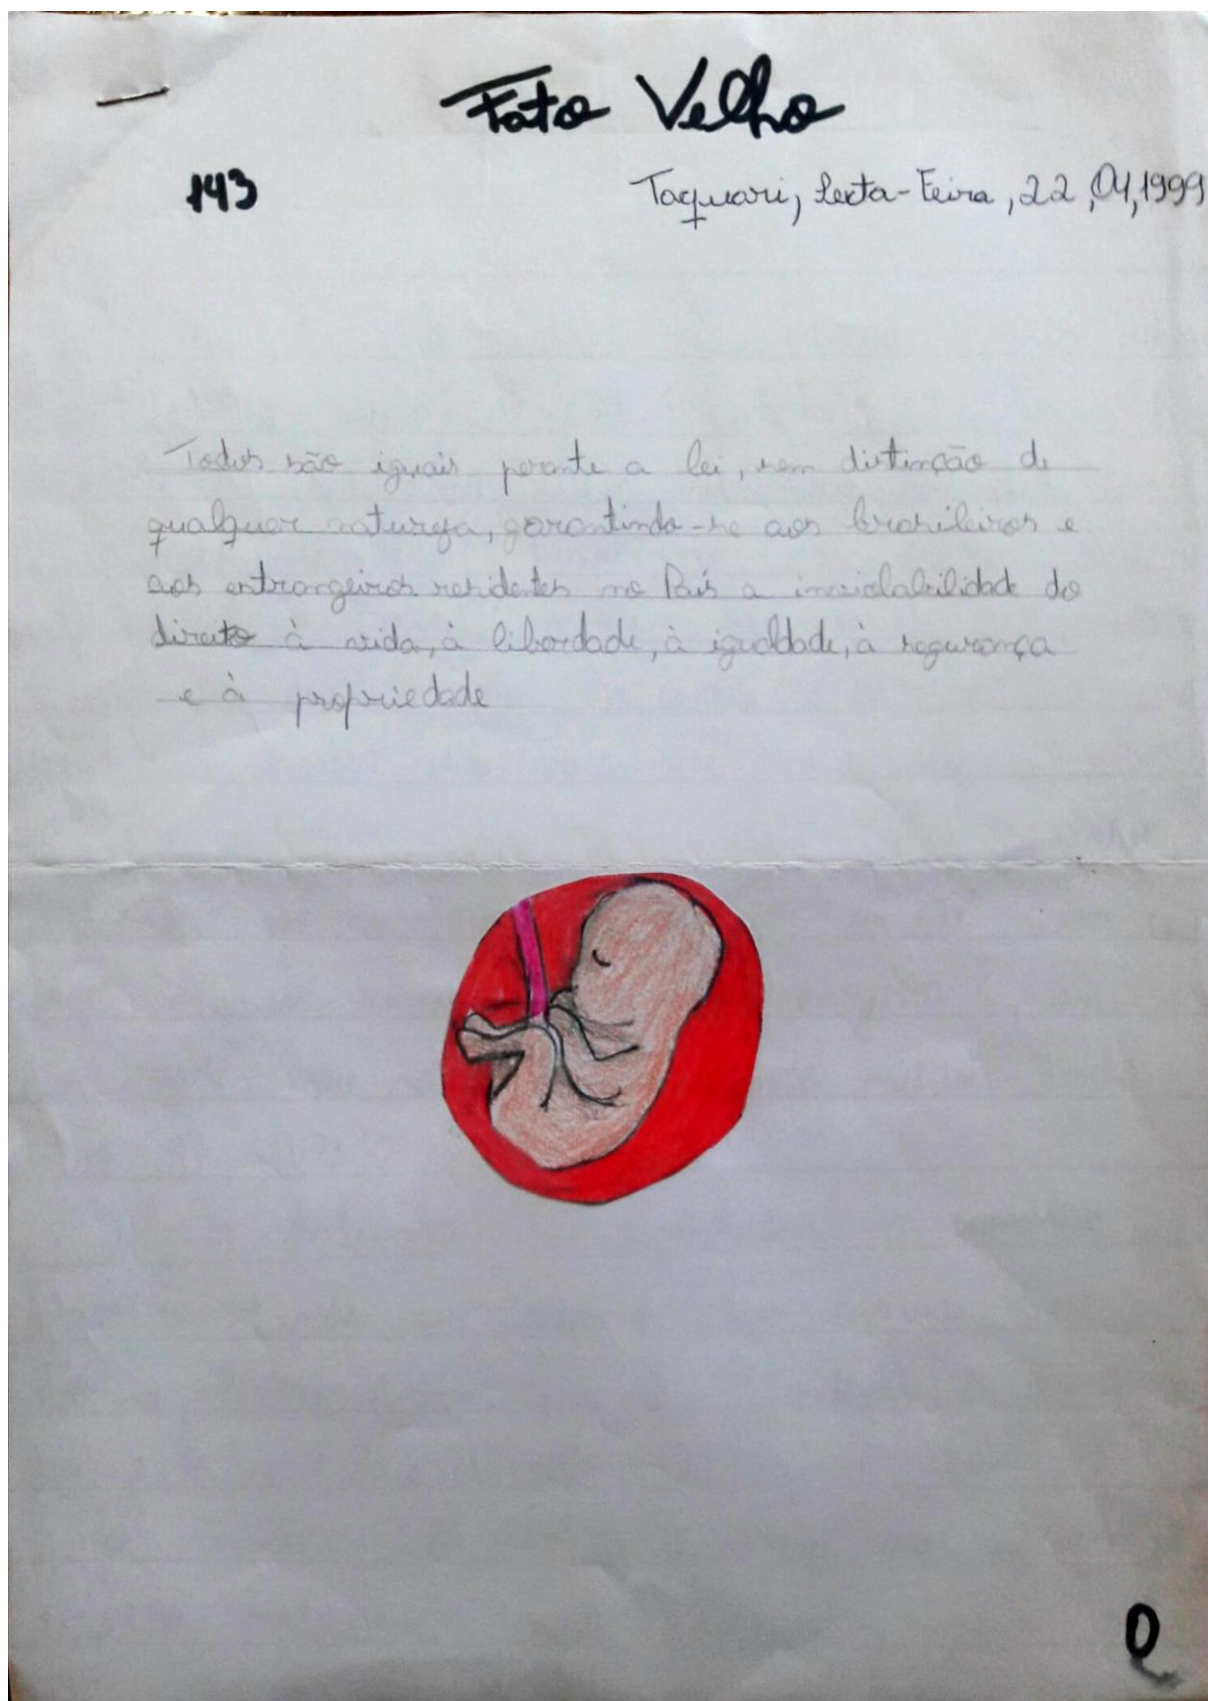 Fato Velho
143
Taquari, Sexta-Feira, 22,01,1999
Todos são iguais perante a lei, sem distinção de
qualquer natureza, garantindo-se aos brasileiros e
aos estrangeiros residentes no País a inviolabilidade do
direito à vida, à liberdade, à igualdade, à segurança
e à propriedade
0